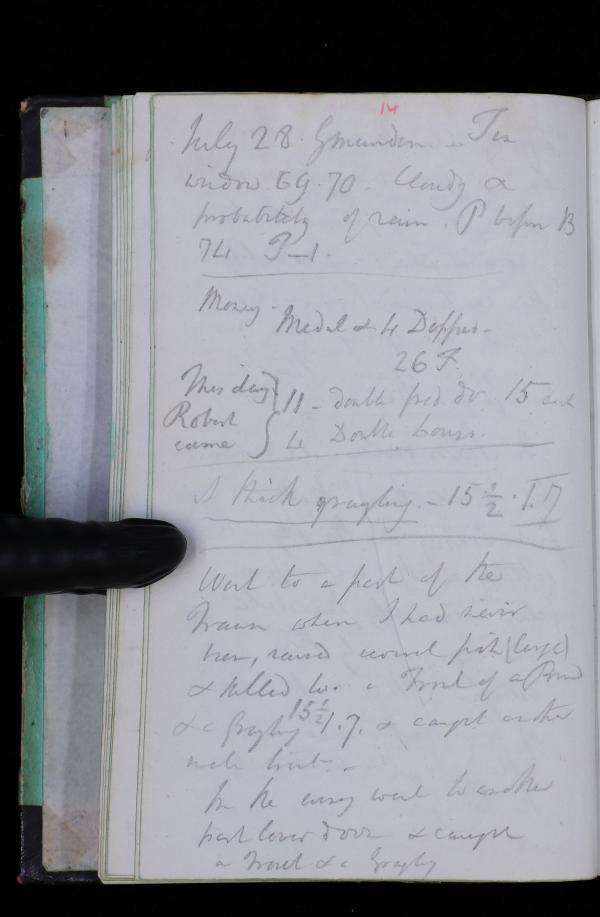 14
July 28. Gmunden -
window 69.70 - Cloudy &
probability of rain. P before B
74 P-1.
Money -
Medal & 4 Doppes -
26 F.
This day
Robert
came
11 - double fred. do 15 each
4 Double Louis.
I think grayling - 15 1/2 . 1.7
Went to a part of the
Traun where I had never
been, raised several fish (large)
& killed two. a Trout of a Pound
& a Grayling 15 1/2 1.7. & caught another
trout -
In the evening went to another
part lower down & caught
a Trout & a Grayling